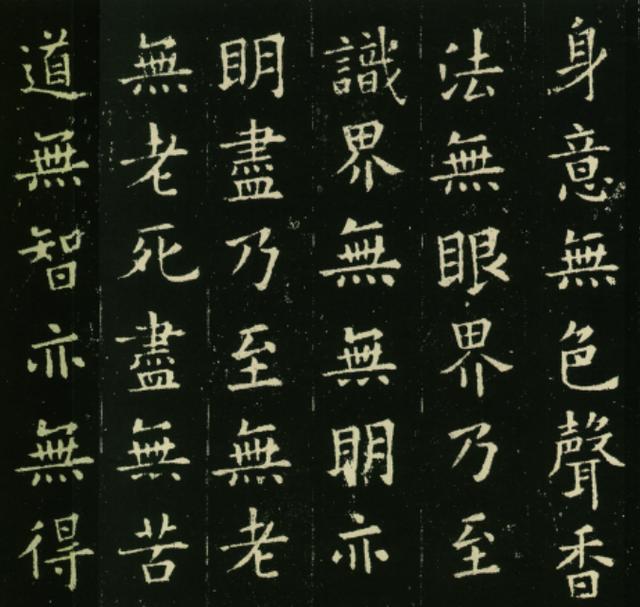 身意無色聲香
法無眼界乃至
識界無無明亦
明盡乃至無老
無老死盡無苦
道無智亦無得